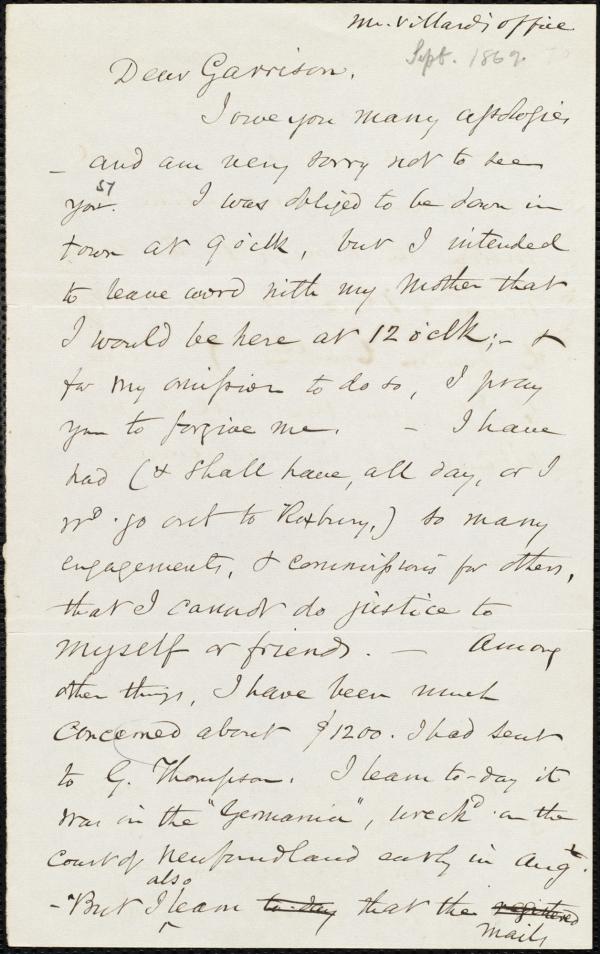 Mr. Villard's office
Sept. 1869.
Dear Garrison,
I owe you many apologies
– and am very sorry not to see
you. I was obliged to be down in
town at 9 o'clk, but I intended
to leave word with my Mother that
I would be here at 12 o'clk; – &
for my omission to do so, I pray
you to forgive me. – I have
had (& shall have, all day, or I
wd. go out to Roxbury,) so many
engagements, & commissions for others,
that I cannot do justice to
myself or friends. – Among
other things, I have been much
concerned about $1200. I had sent
to G. Thompson. I learn to-day it
was in the "Germania", wreck'd on the
coast of Newfoundland early in Augt.
– But I also learn to-day that the registered
mails